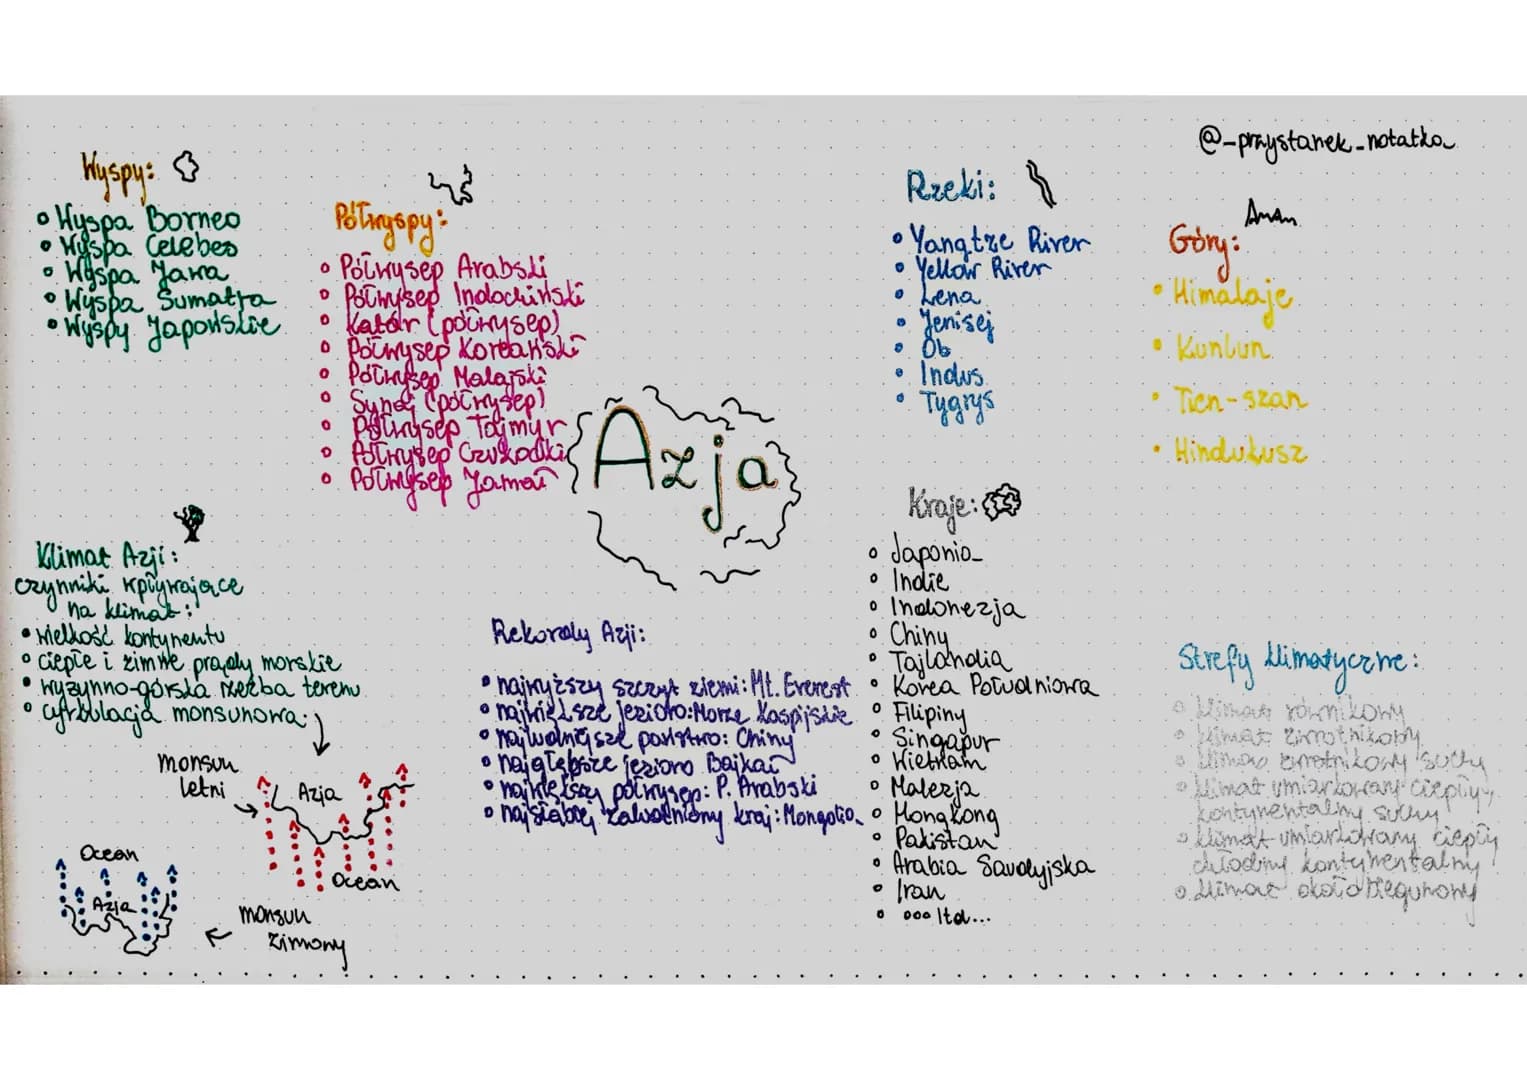 @_przystanek_notatka
Wyspy:
• Wyspa Borneo
• Wyspa Celebes
• Wyspa Jawa
• Wyspa Sumatra
• Wyspy Japońskie
Półwyspy:
• Półwysep Arabski
• Półwysep Indochiński
• Katar (półwysep)
• Półwysep Koreański
• Półwysep Malajski
• Synaj (półwysep)
• Półwysep Tajmyr
• Półwysep Czukocki
• Półwysep Jamał
Azja
Rzeki:
• Yangtze River
• Yellow River
• Lena
• Jenisej
• Ob
• Indus
• Tygrys
Góry:
• Himalaje
• Kunlun
• Tien-szan
• Hindukusz
Klimat Azji:
czynniki wpływające
na klimat:
• wielkość kontynentu
• ciepłe i zimne prądy morskie
• wyżynno-górska rzeźba terenu
• cyrkulacja monsunowa:
monsun
letni
Azja
Ocean
Ocean
Azja
monsun
zimowy
Rekordy Azji:
• najwyższy szczyt ziemi: Mt. Everest
• największe jezioro: Morze Kaspijskie
• najludniejsze państwo: Chiny
• najgłębsze jezioro Bajkał
• największy półwysep: P. Arabski
• najsłabiej zaludniony kraj: Mongolia
Kraje:
• Japonia
• Indie
• Indonezja
• Chiny
• Tajlandia
• Korea Południowa
• Filipiny
• Singapur
• Wietnam
• Malezja
• Hongkong
• Pakistan
• Arabia Saudyjska
• Iran
• ... Itd...
Strefy klimatyczne:
• klimat równikowy
• klimat zwrotnikowy
• klimat zwrotnikowy suchy
• klimat umiarkowany ciepły,
kontynentalny suchy
• klimat umiarkowany ciepły
chłodny kontynentalny
• klimat okołobiegunowy